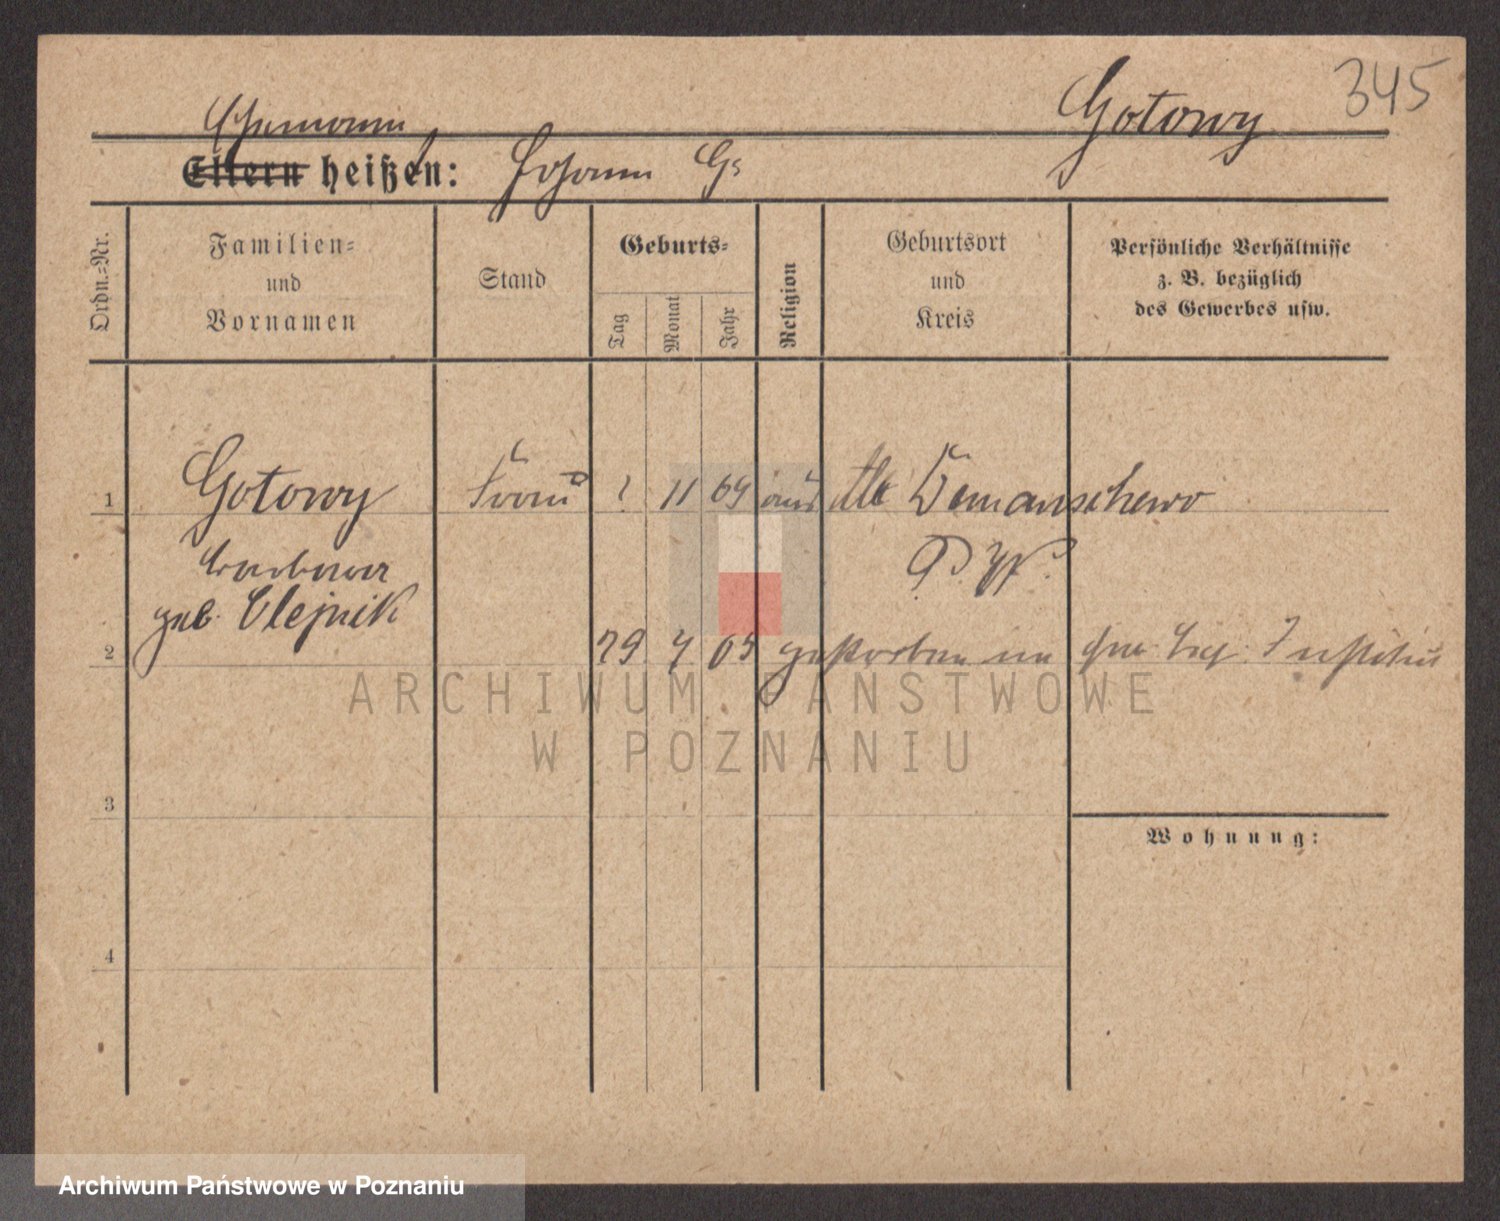 345
Gotowy
Ehemann
Eltern heißen: Johann G.
Ordn.=Nr.
Familien=
und
Vornamen
Stand
Geburts=
Tag
Monat
Jahr
Religion
Geburtsort
und
Kreis
Persönliche Verhältnisse
z. B. bezüglich
des Gewerbes usw.
1 Gotowy Frau ? 11 64 aus Demanschewo
Barbara
P. W.
geb. Olejnik
2 29 4 05 gestorben im Hyg. Institut
3
Wohnung:
4
ARCHIWUM PAŃSTWOWE
W POZNANIU
Archiwum Państwowe w Poznaniu